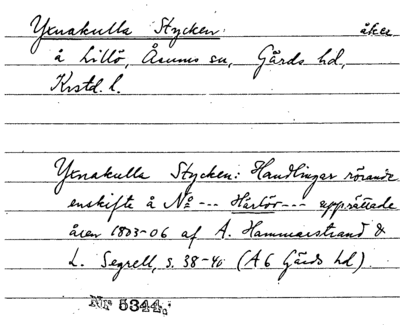 Yxnakulla Stycken: åker
å Lillö, Åsums sn, Gärds hd,
Krstd. l.
Yxnakulla Stycken: Handlingar rörande
enskifte å No --- Härlöv --- upprättade
åren 1803-06 af A. Hammarstrand &
L. Segrell, s. 38-40 (A6 Gärds hd).
Nr 5344.